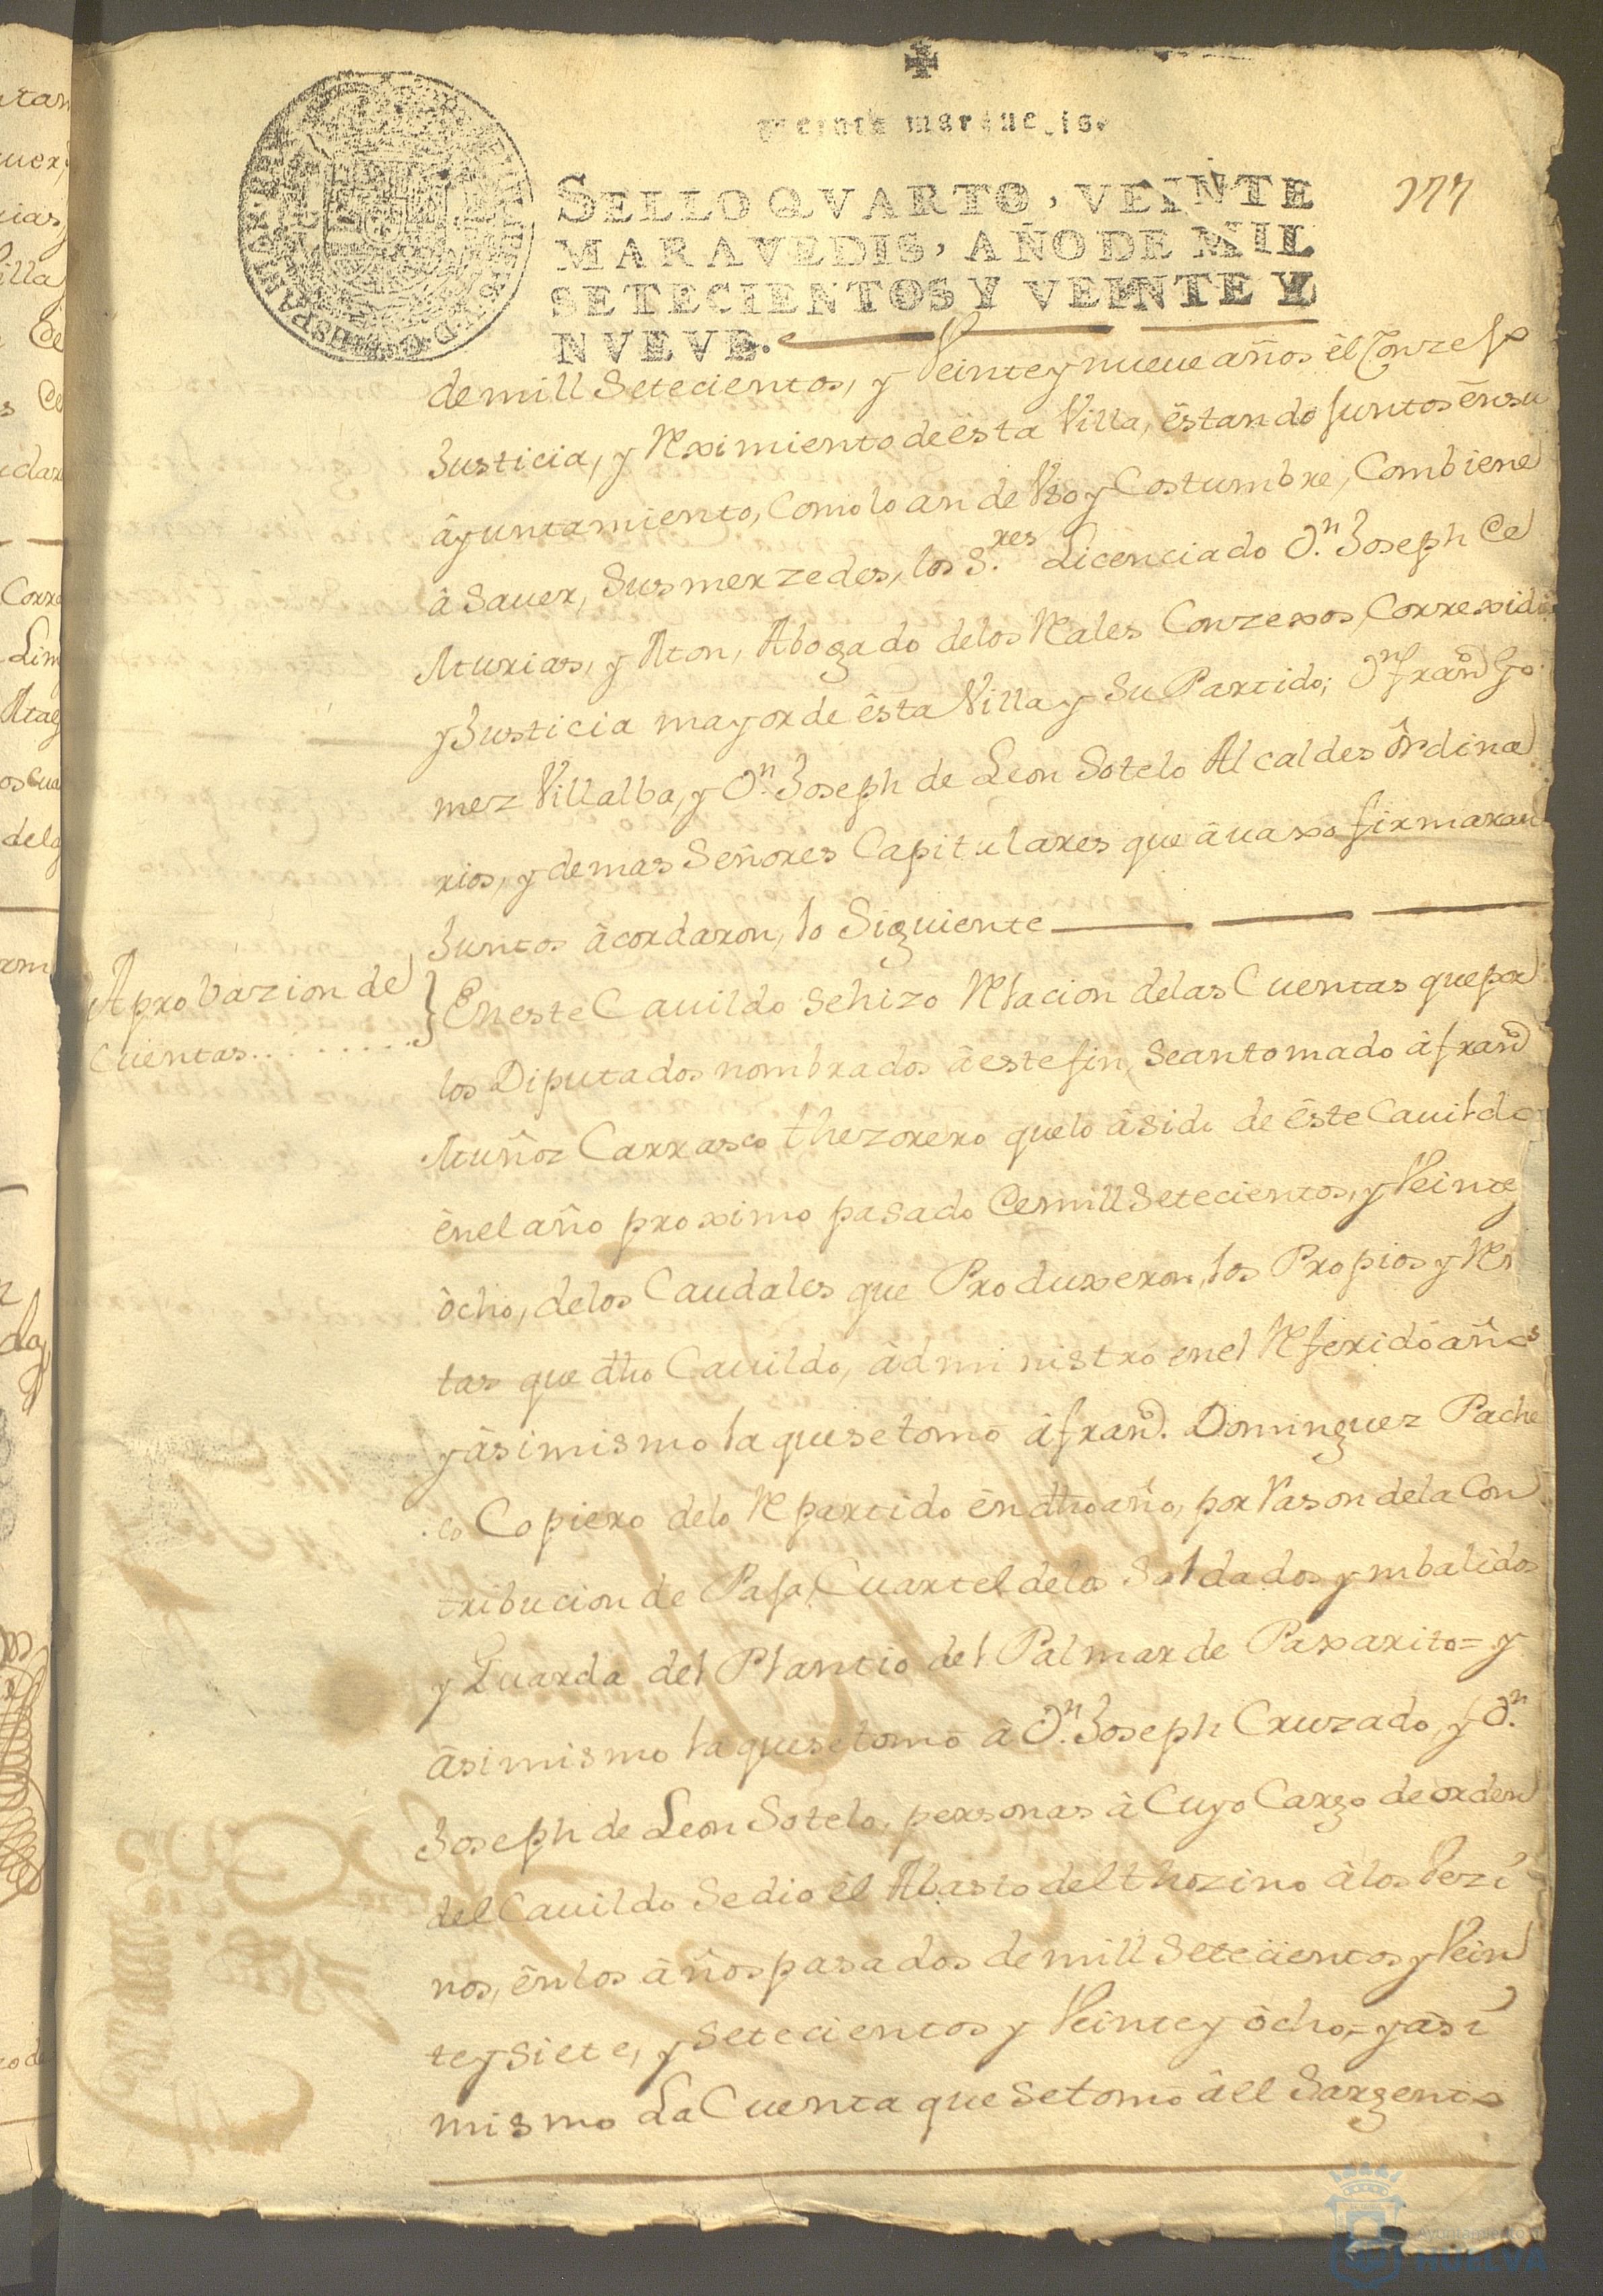 veinte maravedis.
SELLO QVARTO, VEINTE
MARAVEDIS, AÑO DE MIL
SETECIENTOS Y VEINTE Y
NVEVE.
177
de mill Setecientos, y Veinte y nueue años êl Conzejo
Justicia, y Reximiento de êsta Villa, êstando Juntos ên su
âyuntamiento, Como lo an de Vso y Costumbre, Combiene
â Sauer, Sus merzedes, los S.res Licenciado D.n Joseph de
Aturias, y Aton, Abogado de los Reales Conzexos, Correxidor
y Justicia mayor de êsta Villa y Su Partido; D.n franco Go
mez Villalba, y D.n Joseph de Leon Sotelo Alcaldes ôrdina
rios, y demas Señores Capitulares que âuaxo firmaran
Juntos âcordaron, lo Siguiente
Aprobazion de
Cuentas
En este Cauildo se hizo Relacion de las Cuentas que por
los Diputados nombrados â este fin, Se an tomado â franco
Muñoz Carrasco thezorero que lo â sido de êste Cauildo
ên el año proximo pasado de mill Setecientos, y Veinte y
ôcho, de los Caudales que Produxeron, los Propios y Ren
tas que dho Cauildo, âdministró en el Referido año
y âsimismo la que se tomo â franco. Dominguez Pache
co Copiero de lo Repartido ên dho año, por Rason de la Con
tribucion de Paja, Cuartel de los Soldados ymbalidos
y Guarda del Plantio del Palmar de Paxarito = y
âsimismo la que se tomo â D.n Joseph Cruzado, y D.n
Joseph de Leon Sotelo, personas â Cuyo Cargo de orden
del Cauildo Se dio êl Abasto del thozino â los Vezi
nos, ên los âños pasados de mill Setecientos y Vein
te y Siete, y Setecientos y Veinte y ôcho, = y âsi
mismo La Cuenta que Se tomo âll Sargento
Ayuntamiento
HUELVA